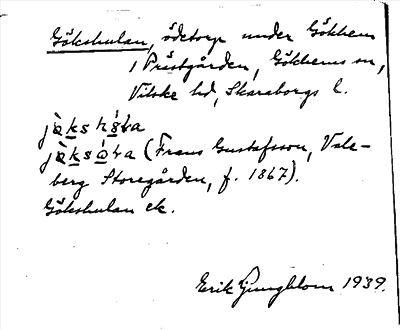 Gökshulan, ödetorp under Gökhem
1 Prästgården, Gökhems sn,
Vilske hd, Skaraborgs l.
jö̀kshúʟa
jö̀ksúʟa (Frans Gustafsson, Vale-
berg Storegården, f. 1867).
Gökshulan ek.
Erik Ljungblom 1939.